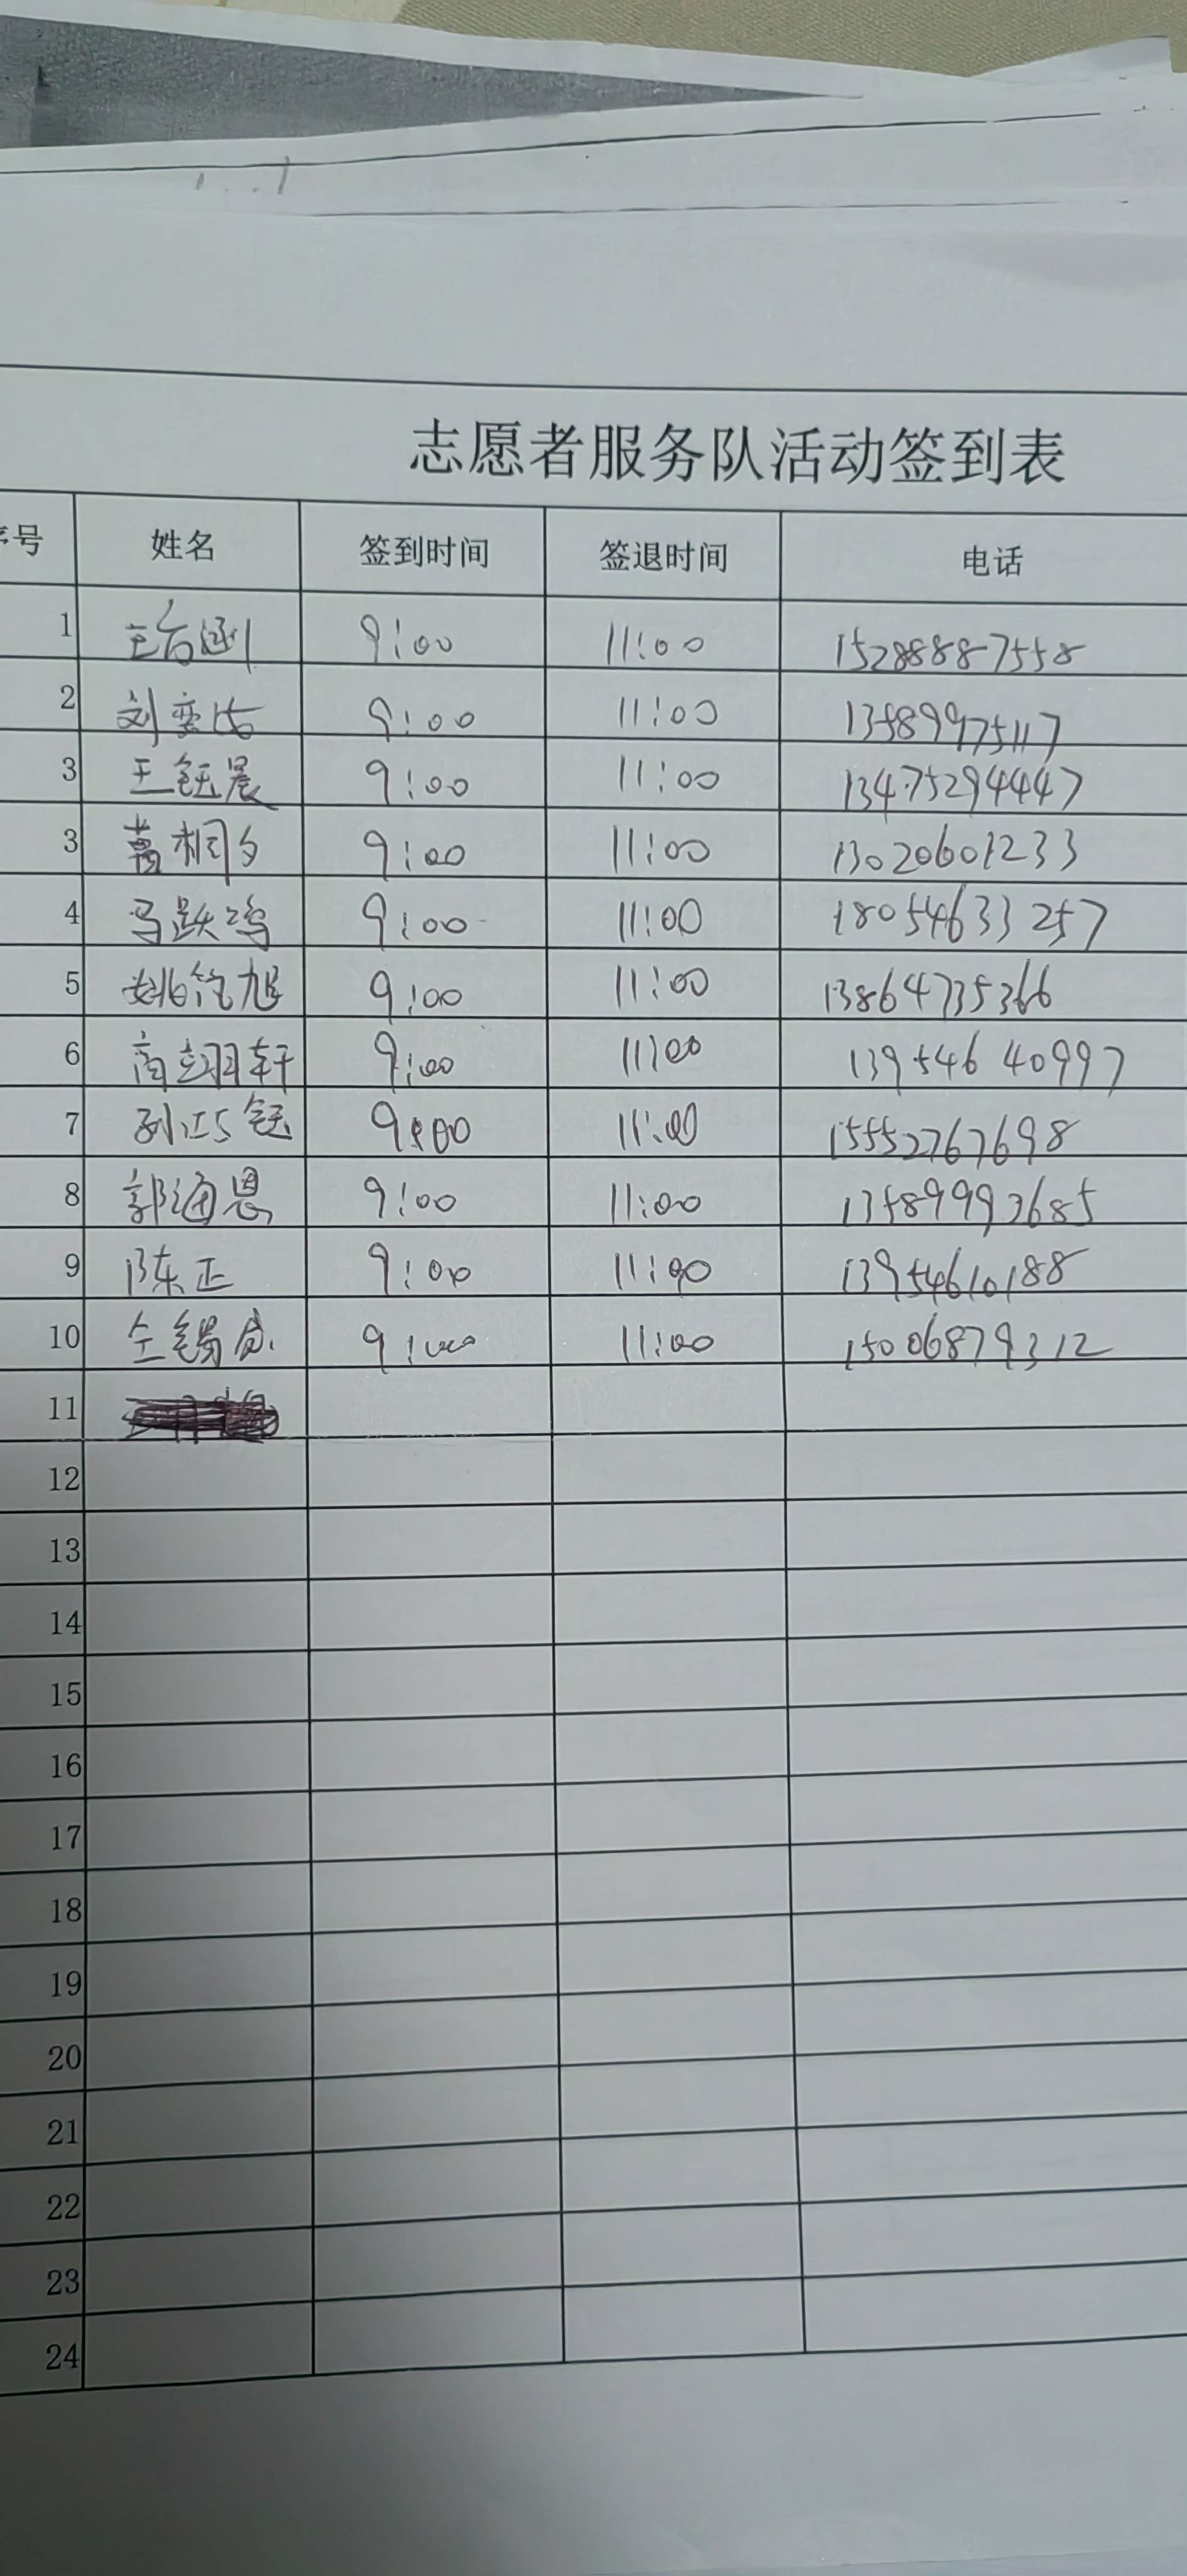 志愿者服务队活动签到表
序号 姓名 签到时间 签退时间 电话
1 9:00 11:00 15288887558
2 刘奕 9:00 11:00 13589975117
3 王钰晨 9:00 11:00 13475294447
3 葛桐夕 9:00 11:00 13020601233
4 马跃鸣 9:00 11:00 18054633257
5 姚 旭 9:00 11:00 13864735366
6 商翊轩 9:00 11:00 13954640997
7 孙巧钰 9:00 11:00 15552767698
8 郭涵恩 9:00 11:00 13589993685
9 陈正 9:00 11:00 13954610188
10 仝锡 9:00 11:00 15006879312
11
12
13
14
15
16
17
18
19
20
21
22
23
24